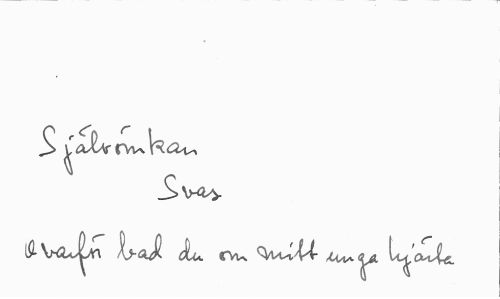 Självömkan
Svar
Ovarför bad du om mitt unga hjärta